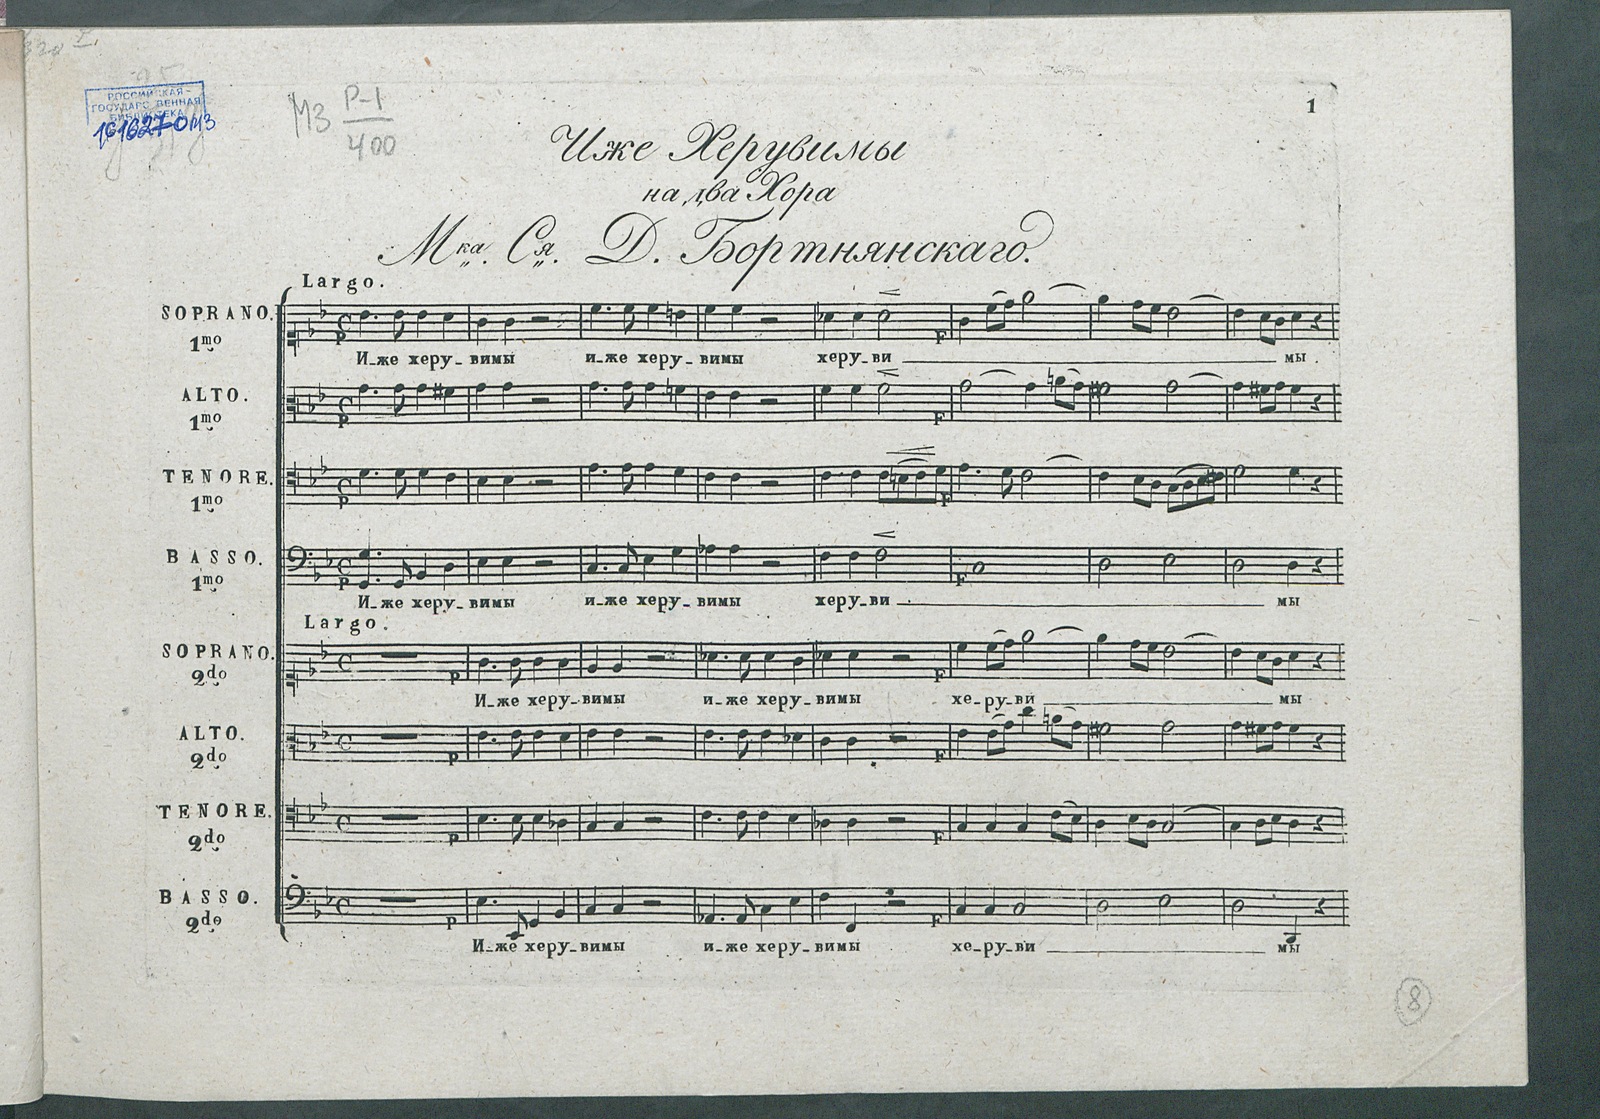 РОССИЙСКАЯ
ГОСУДАРСТВЕННАЯ
БИБЛИОТЕКА
МЗ Р-1
400
1
Иже Херувимы
на два Хора
Мка. Ся. Д. Бортнянскаго.
Largo.
SOPRANO.
1mo
P F
И-же херу-вимы и-же херу-вимы херу-ви мы.
ALTO.
1mo
P F
TENORE.
1mo
P F
BASSO.
1mo
P F
И-же херу-вимы и-же херу-вимы херу-ви мы
Largo.
SOPRANO.
2do
P F
И-же херу-вимы и-же херу-вимы хе-ру-ви мы
ALTO.
2do
P F
TENORE.
2do
P F
BASSO.
2do
P F
И-же херу-вимы и-же херу-вимы хе-ру-ви мы
8